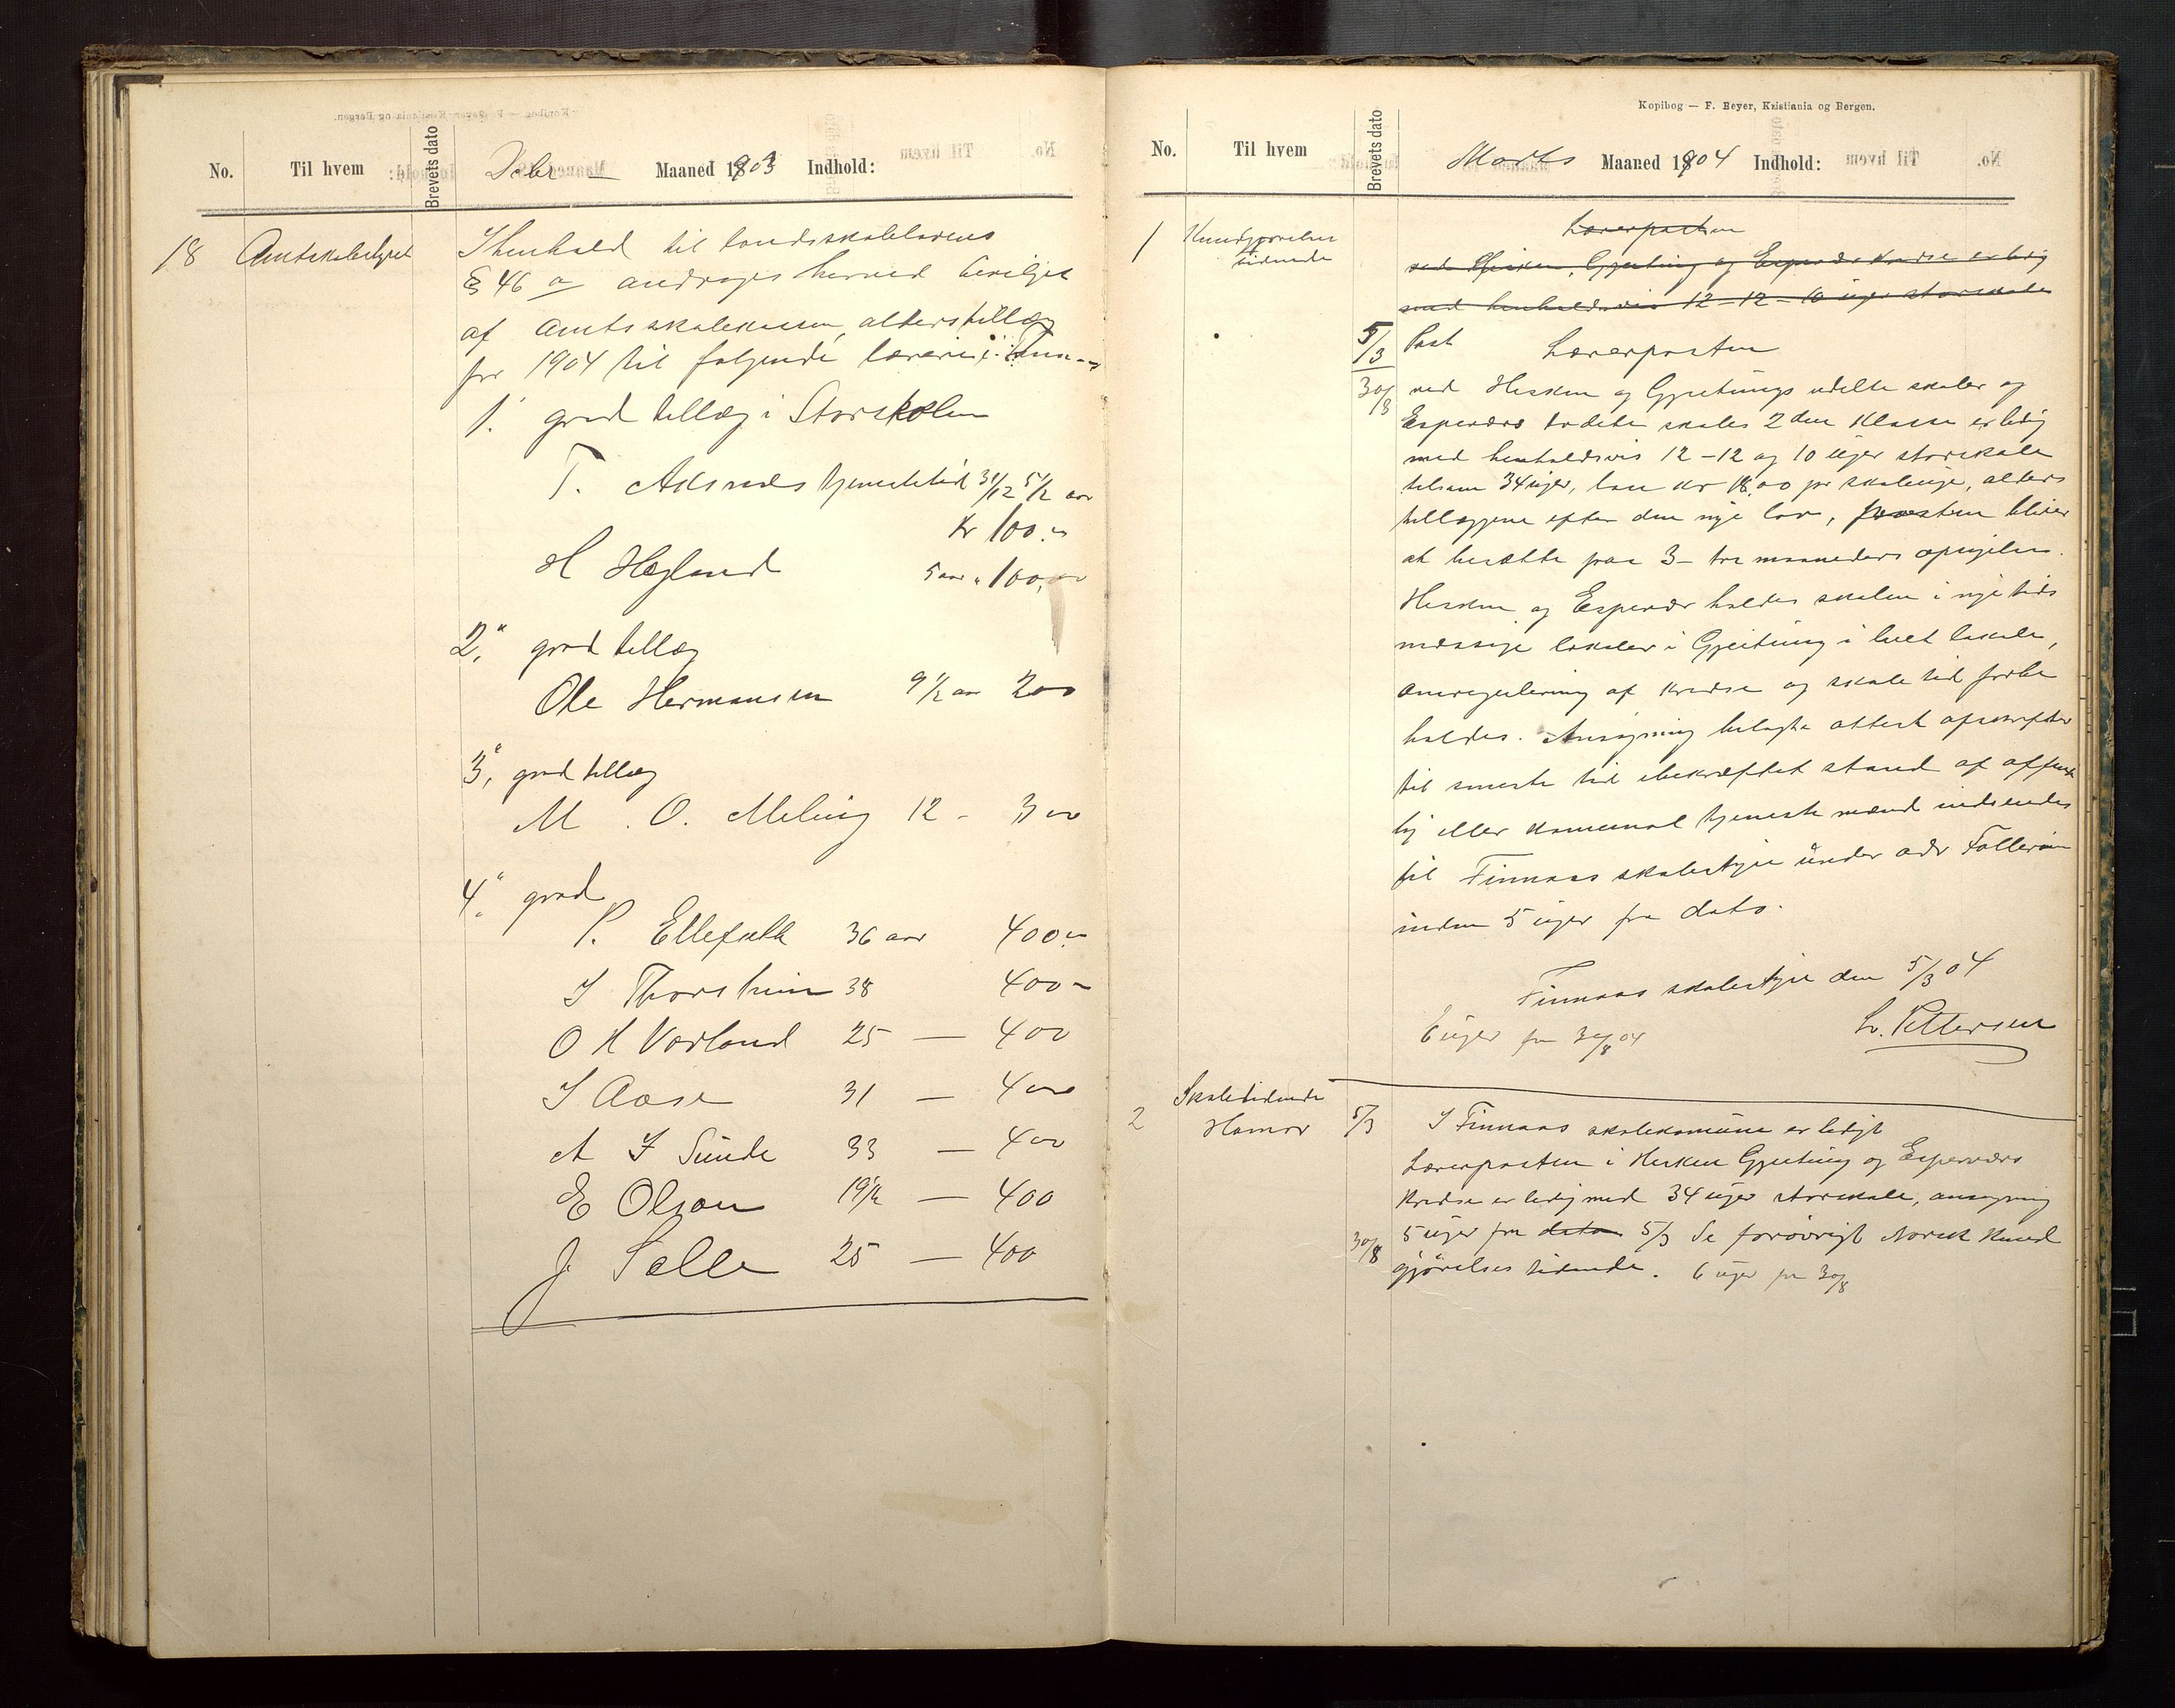 No. Til hvem Brevets dato Debr – Maaned 1903 Indhold:
18 Amtskolestyret I henhold til landsskolelovens
§ 46 a andrages herved bevilget
af Amtsskolekassen alderstillæg
for 1904 til følgende lærere i Finnaas
1. grad tillæg i Storskolen
T. Aksnæs tjenestetid 31/12 5 1/2 aar
Kr 100.00
H Høgland 5 aar " 100,00
2." grad tillæg
Ole Hermansen 9 1/2 aar 200
3." grad tillæg
M. O. Meling 12 - 300
4." grad
P. Ellefsen 36 aar 400.00
I Thorsteinsen 38 400 -
O H Vorland 25 — 400
I Aase 31 — 400
A I Sünde 33 — 400
E Olson 19 1/2 — 400
J Salle 25 — 400
Kopibog — F. Beyer, Kristiania og Bergen.
No. Til hvem Brevets dato Marts Maaned 1904 Indhold:
1 Kundgjørelses
tidende
Lærerposten
ved Hisken, Gjeitung og Espevær kredse er ledig
med henholdsvis 12 - 12 - 10 uger storskole
5/3 Post Lærerposten
30/8 ved Hisken og Gjeitungs udelte skoler og
Espeværs todelte skoles 2den Klasse er ledig
med henholdsvis 12 - 12 og 10 üger storskole
tilsam 34 uger, løn kr 18,00 pr skoleuge, alders
tillæggene efter den nye lov, posten bliver
at besætte paa 3 - tre maaneders opsigelse.
Hisken og Espevær holdes skolen i nye tids
mæssige lokaler i Gjeitung i leiet lokale,
omregulering af kredse og skoletid forbe
holdes. Ansøgning belagte attest afskrifter
til seneste tid bekræftet stand af offent
lig eller komunal tjeneste mænd indsendes
til Finnaas skolestyre ünder adr Folleröen
inden 5 uger fra dato.
Finnaas skolestyre den 5/3 04
L. Pettersen
6 uger fra 30/8 04
2 Skoletidende
Hamar 5/3 I Finnaas skolekomüne er ledigt
Lærerposten i Hisken Gjeitung og Espeværs
Kredse er ledig med 34 üger storskole, ansøgning
30/8 5 uger fra dato 5/3 Se forövrigt Norsk Kund
gjörelses tidende. 6 uger fra 30/8